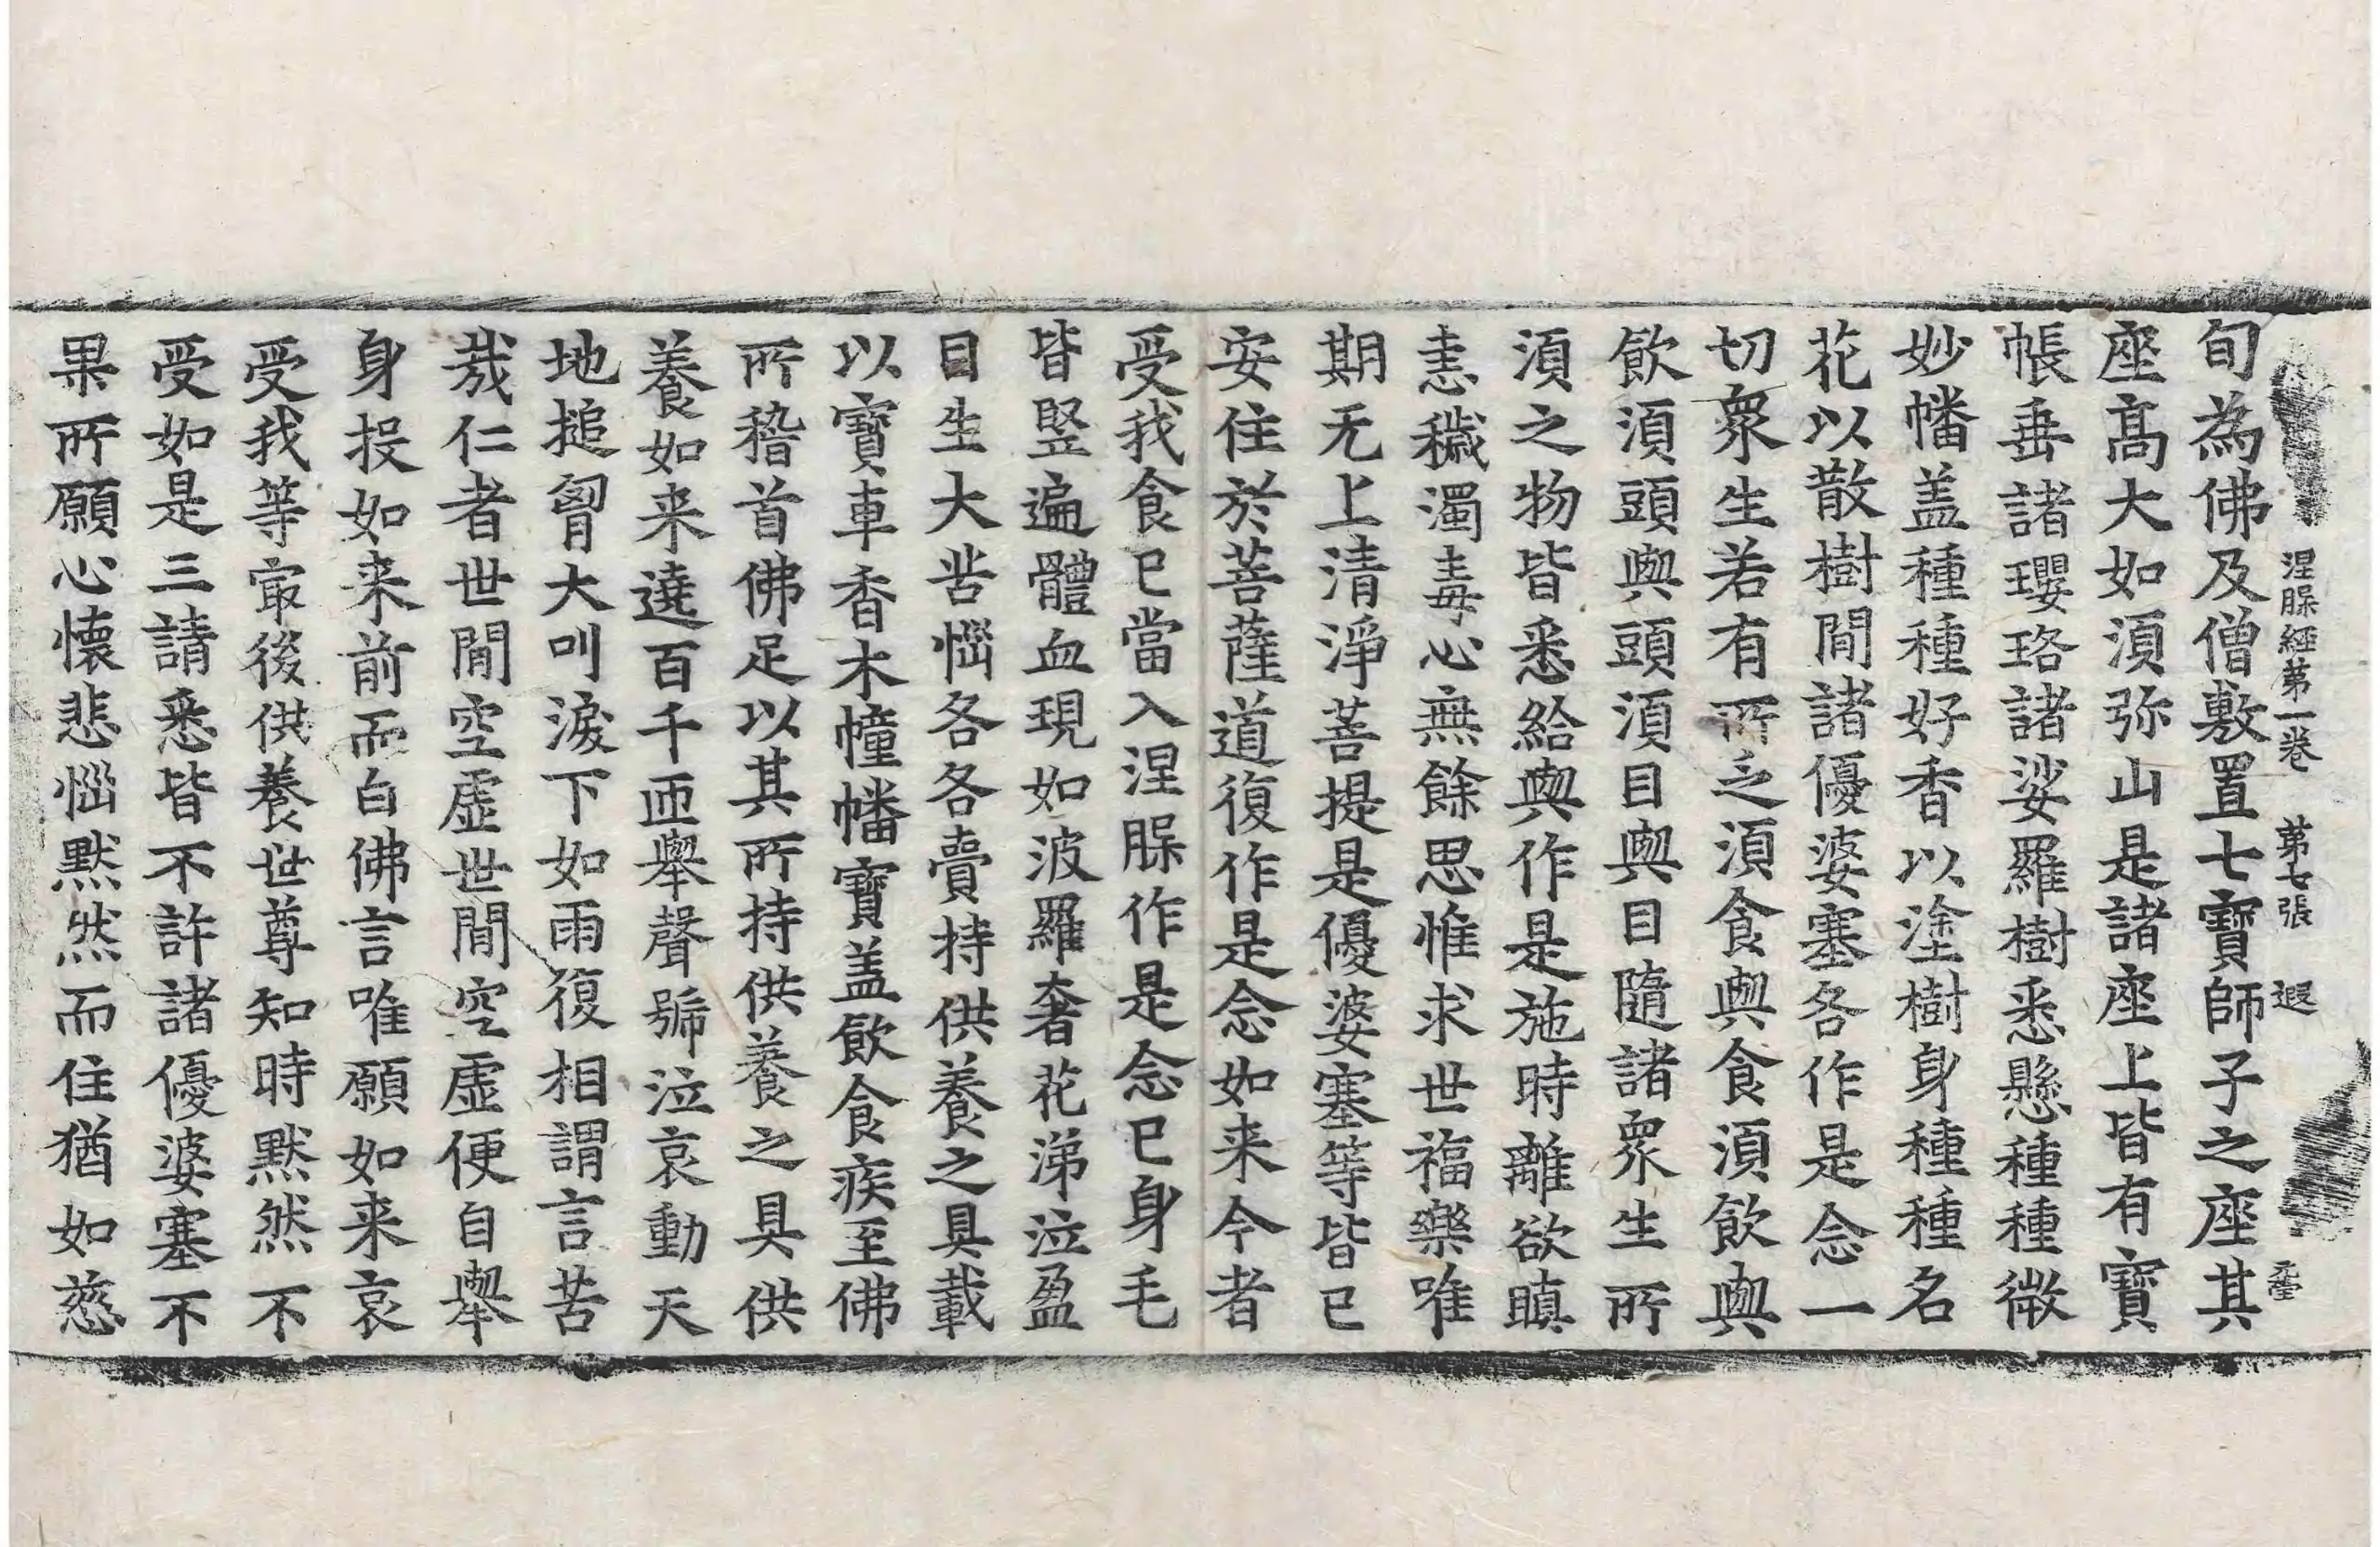 涅槃經第一卷　第七張　遐　元㙜
旬為佛及僧敷置七寶師子之座其
座髙大如湏弥山是諸座上皆有寶
帳垂諸瓔珞諸娑羅樹悉懸種種微
妙幡盖種種好香以塗樹身種種名
花以散樹閒諸優婆塞各作是念一
切衆生若有所乏湏食與食湏飲與
飲湏頭與頭湏目與目隨諸衆生所
湏之物皆悉給與作是施時離欲瞋
恚穢濁毒心無餘思惟求世福樂唯
期无上清淨菩提是優婆塞等皆已
安住於菩薩道復作是念如来今者
受我食已當入涅槃作是念已身毛
皆竪遍體血現如波羅奢花涕泣盈
目生大苦惱各各賷持供養之具載
以寶車香木幢幡寶盖飲食疾至佛
所稽首佛足以其所持供養之具供
養如来遶百千匝舉聲號泣哀動天
地搥胷大叫淚下如雨復相謂言苦
哉仁者世閒空虛世閒空虛便自舉
身投如来前而白佛言唯願如来哀
受我等㝡後供養世尊知時黙然不
受如是三請悉皆不許諸優婆塞不
果所願心懷悲惱黙然而住猶如慈